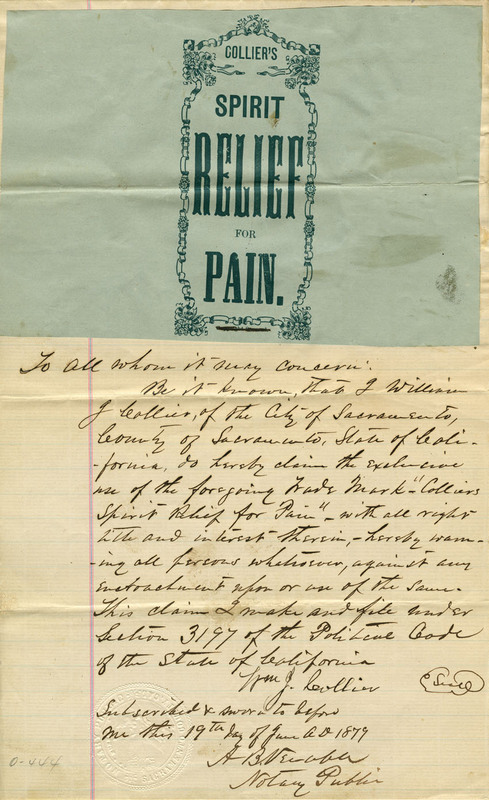 COLLIER'S
SPIRIT
RELIEF
FOR
PAIN.
To all whom it may concern:
Be it known, that I William
J Collier, of the City of Sacramento,
County of Sacramento, State of Cali-
-fornia, do hereby claim the exclusive
use of the foregoing Trade Mark "Colliers
Spirit Relief for Pain" - with all right
title and interest therein, - hereby warn-
-ing all persons whatsoever, against any
encroachment upon or use of the same.
This claim I make and file under
Section 3197 of the Political Code
of the State of California
Wm J. Collier
Seal
Subscribed & sworn to before
me this 19th day of June A.D 1879
A B
Notary Public
0-444